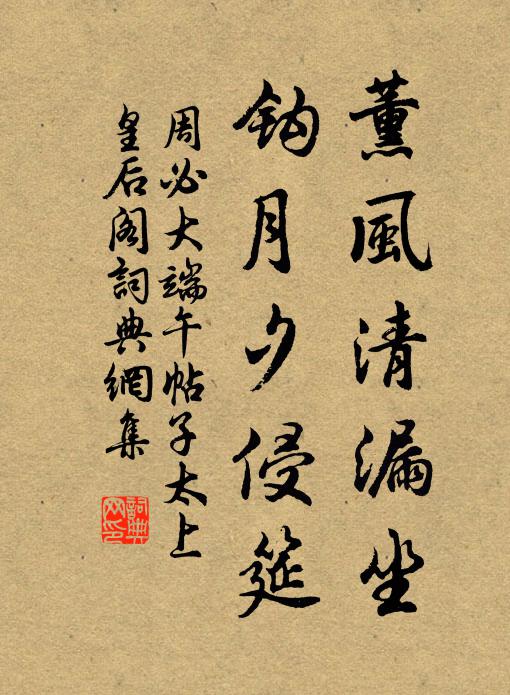 薰風清漏坐
鈎月夕侵筵
周必大端午帖子太上
皇后阁詞典網集
詞典网印